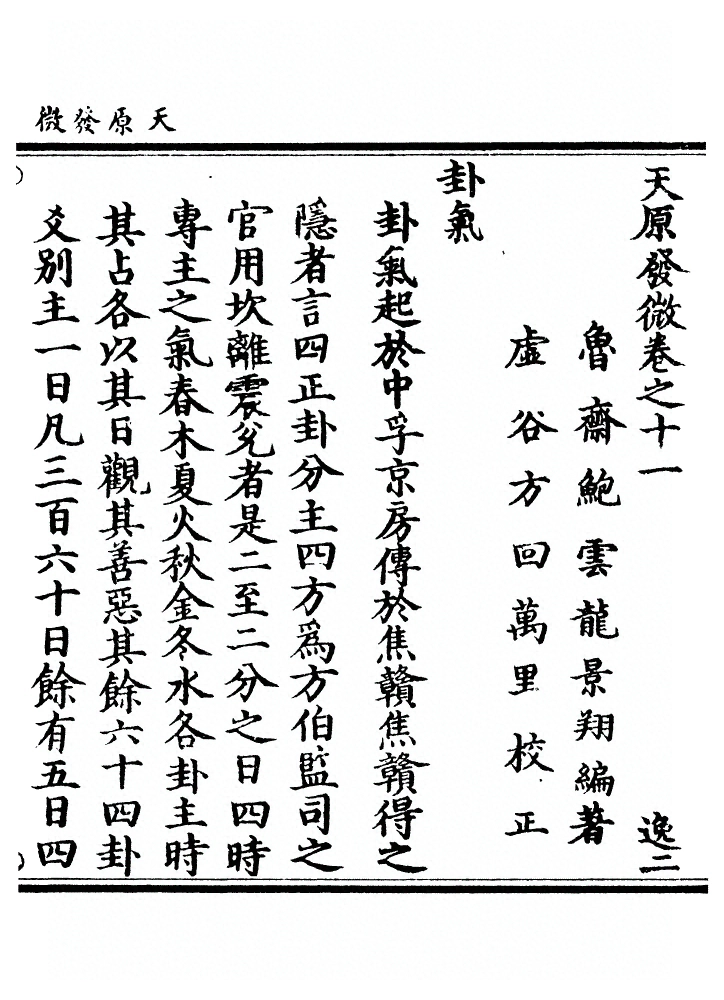 天原發微
天原發微卷之十一 逸二
魯齋鮑雲龍景翔編著
虛谷方回萬里校正
卦氣
卦氣起於中孚京房傳於焦贛焦贛得之
隱者言四正卦分主四方爲方伯監司之
官用坎離震兊者是二至二分之日四時
專主之氣春木夏火秋金冬水各卦主時
其占各以其日觀其善惡其餘六十四卦
爻別主一日凡三百六十日餘有五日四